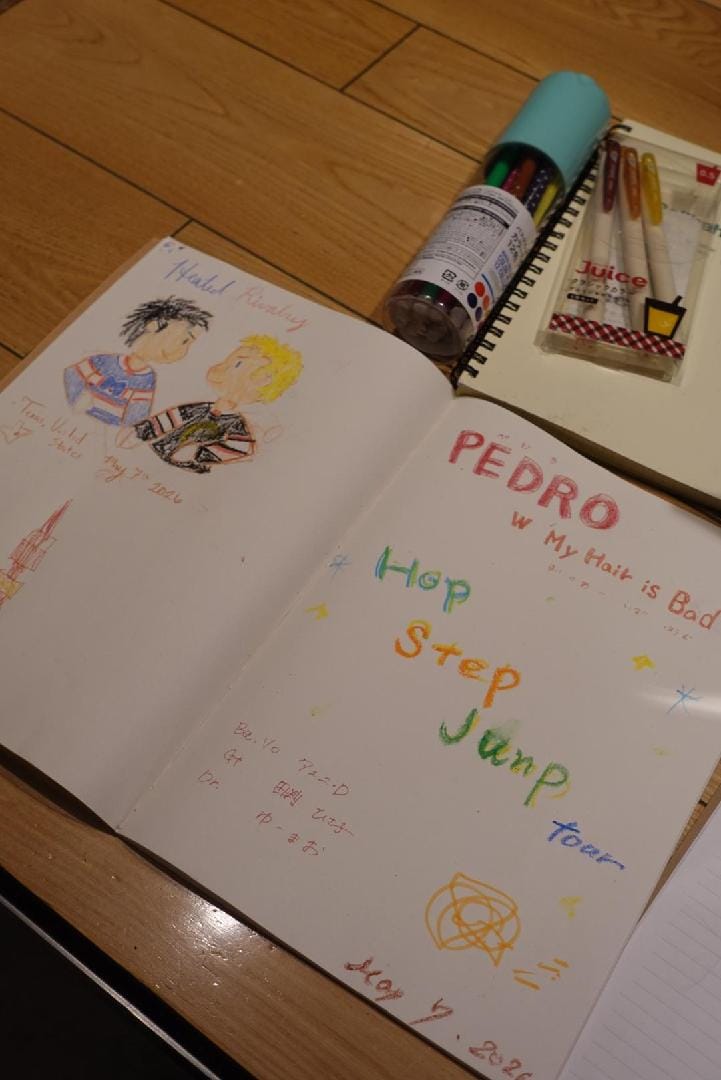 Heated Rivalry
M
Texas, United
States
May 7th 2026
PEDRO
w My Hair is Bad
Hop
Step
Jump
tour
Ba. Vo アユニ・D
Gt 田渕 ひさ子
Dr. ゆーまお
May 7. 2026
Juice
0.5